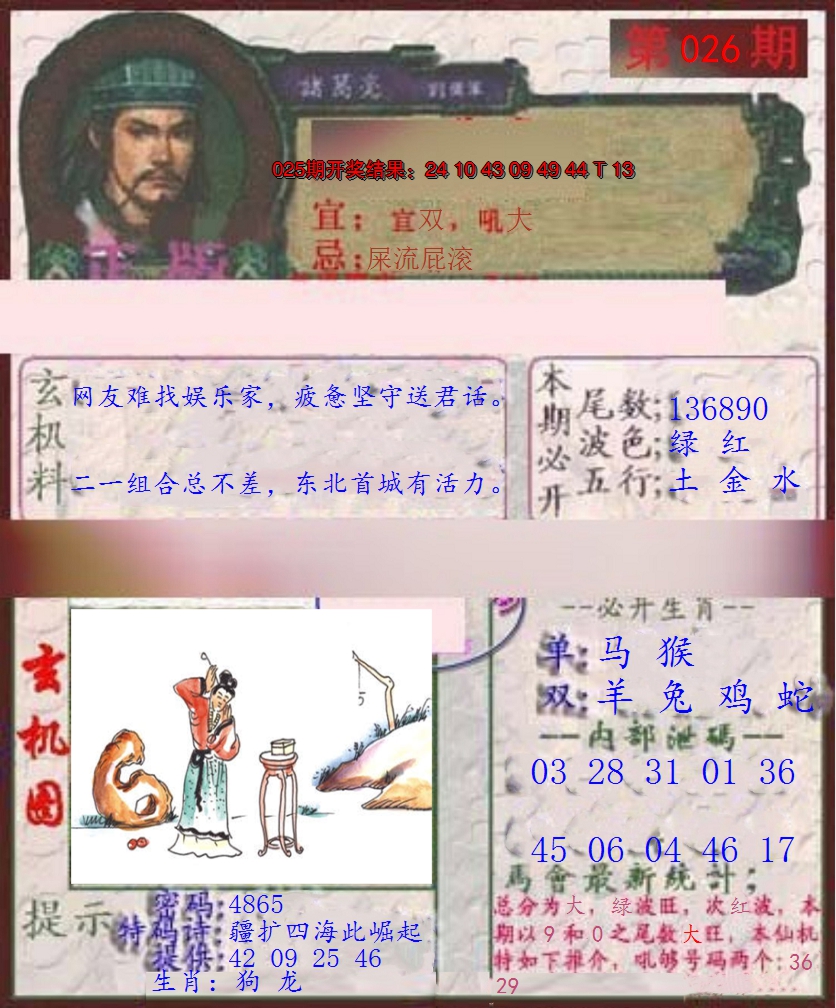 第 026 期
諸葛亮
025期开奖结果：24 10 43 09 49 44 T 13
宜；宜双，吼大
忌；屎流屁滚
正版
玄机料
网友难找娱乐家，疲惫坚守送君话。
二一组合总不差，东北首城有活力。
本期必开
尾数;136890
波色;绿 红
五行;土 金 水
玄机图
5
--必开生肖--
单:马 猴
双:羊 兔 鸡 蛇
—内部泄碼—
03 28 31 01 36
45 06 04 46 17
馬會最新統計;
总分为大，绿波旺，次红波，本
期以9和0之尾数大旺，本仙机
特如下推介，吼够号码两个:36
29
提示
密码:4865
特码诗:疆扩四海此崛起
提供:42 09 25 46
生肖: 狗 龙